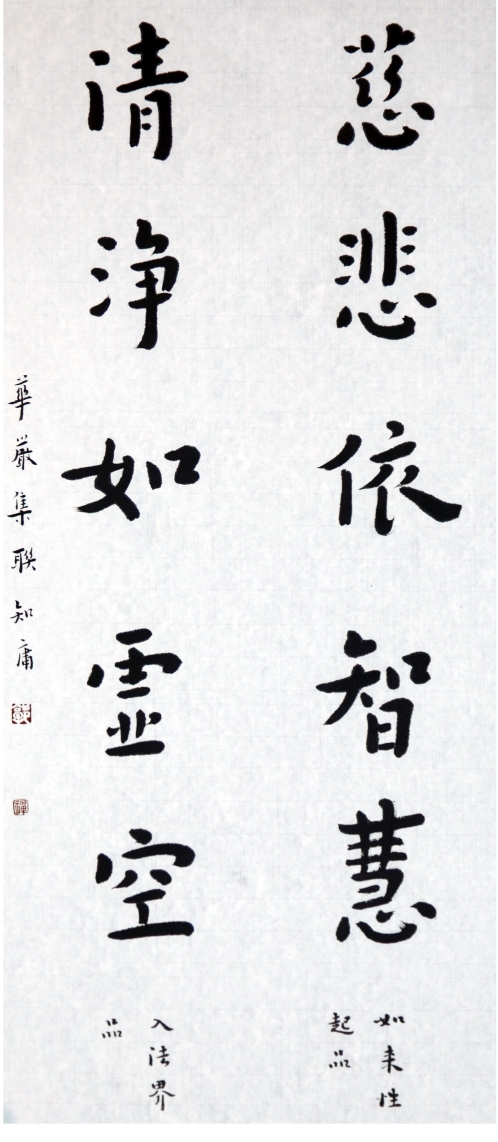 慈悲依智慧
如来性
起品
清浄如虚空
入法界
品
華嚴集聯知庸